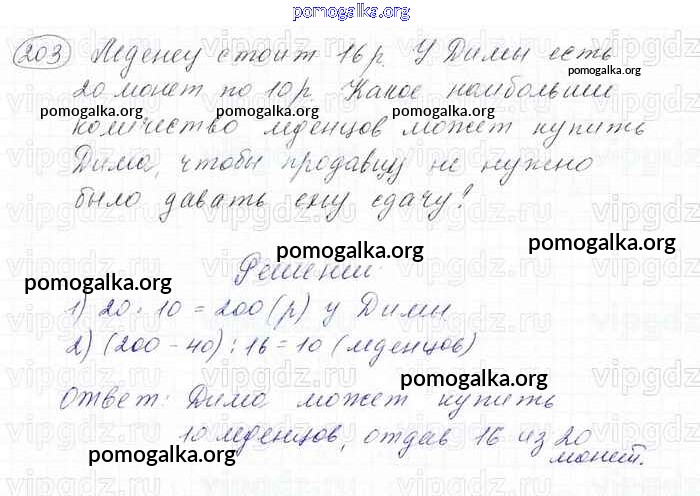 pomogalka.org
203 Леденец стоит 16 р. У Димы есть
20 монет по 10 р. Какое наибольшее
количество леденцов может купить
Дима, чтобы продавцу не нужно
было давать ему сдачу?
Решение:
1) 20 · 10 = 200 (р) у Димы
2) (200 - 40) : 16 = 10 (леденцов)
Ответ: Дима может купить
10 леденцов, отдав 16 из 20
монет.
pomogalka.org
pomogalka.org
pomogalka.org
pomogalka.org
pomogalka.org
pomogalka.org
pomogalka.org
pomogalka.org
pomogalka.org
pomogalka.org